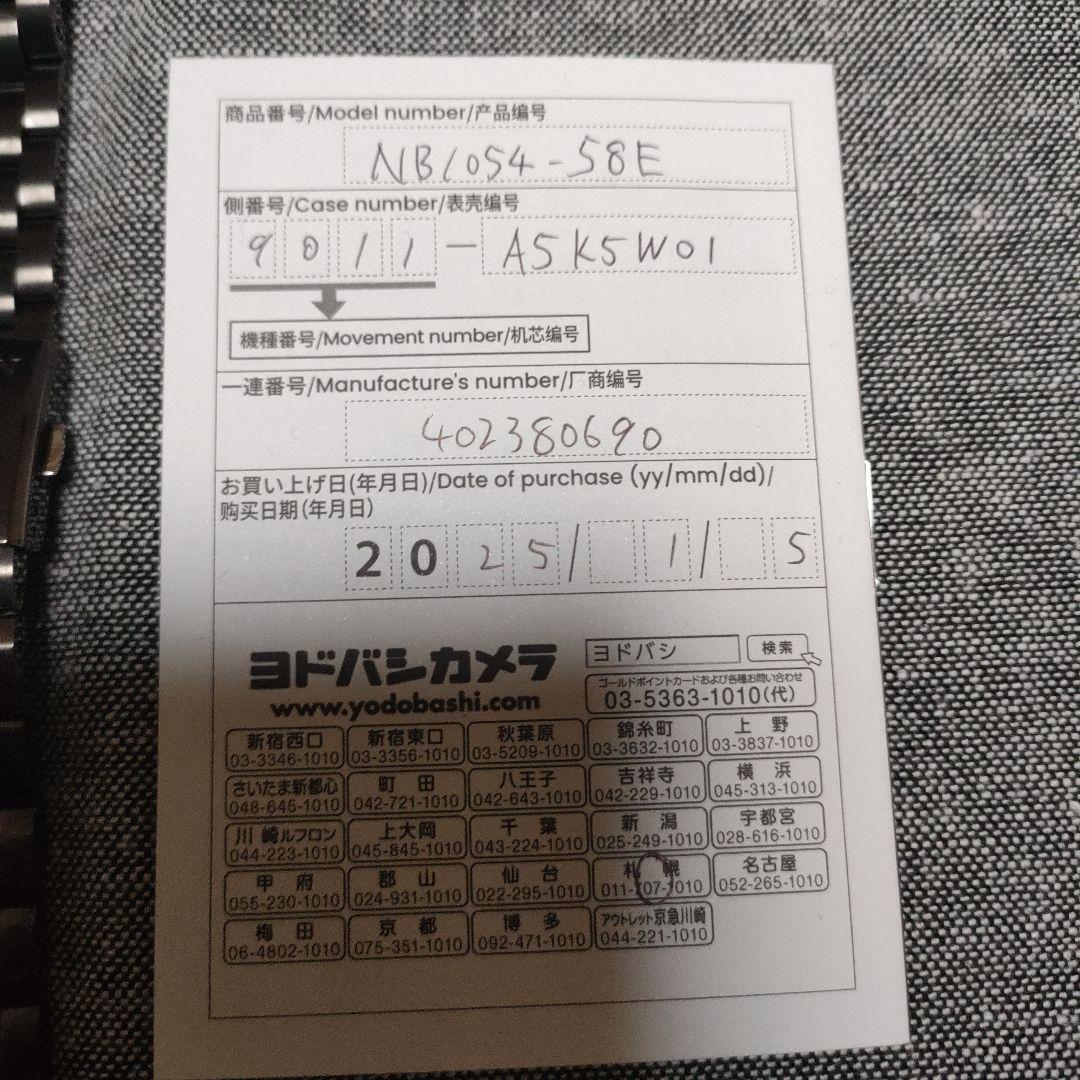 商品番号/Model number/产品编号
NB1054-58E
側番号/Case number/表壳编号
9011-A5K5W01
機種番号/Movement number/机芯编号
一連番号/Manufacture's number/厂商编号
402380690
お買い上げ日(年月日)/Date of purchase (yy/mm/dd)/
购买日期(年月日)
2025/1/5
ヨドバシカメラ
www.yodobashi.com
ヨドバシ 検索
ゴールドポイントカードおよび各種お問い合わせ
03-5363-1010(代)
新宿西口 新宿東口 秋葉原 錦糸町 上野
03-3346-1010 03-3356-1010 03-5209-1010 03-3632-1010 03-3837-1010
さいたま新都心 町田 八王子 吉祥寺 横浜
048-645-1010 042-721-1010 042-643-1010 042-229-1010 045-313-1010
川崎ルフロン 上大岡 千葉 新潟 宇都宮
044-223-1010 045-845-1010 043-224-1010 025-249-1010 028-616-1010
甲府 郡山 仙台 札幌 名古屋
055-230-1010 024-931-1010 022-295-1010 011-707-1010 052-265-1010
梅田 京都 博多 アウトレット京急川崎
06-4802-1010 075-351-1010 092-471-1010 044-221-1010